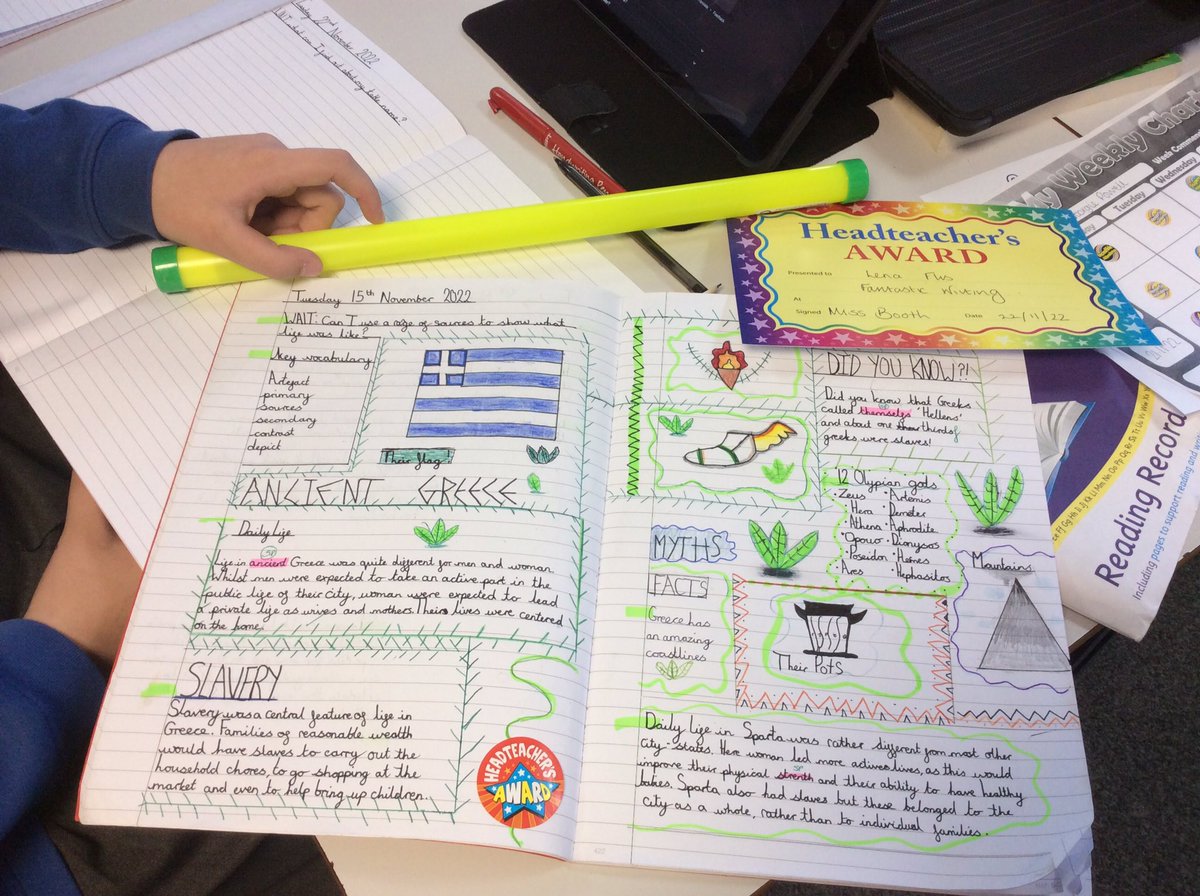 22nd November 2022
Headteacher's
AWARD
Presented to
Fantastic Writing
At
Signed Miss Booth Date 22/11/22
My Weekly Chart
Tuesday
Wednesday
Reading Record
Including pages to support reading and
Handwriting Pen
Tuesday 15th November 2022
WAIT: Can I use a rage of sources to show what
life was like?
Key vocabulary
Artefact
primary
sources
secondary
contrast
depict
Their flag
ANCIENT GREECE
Daily Life
sp
Life in ancient Greece was quite different for men and woman.
Whilst men were expected to take an active part in the
public life of their city, woman were expected to lead
a private life as wives and mothers. Their lives were centered
on the home.
SLAVERY
Slavery was a central feature of life in
Greece. Families of reasonable wealth
would have slaves to carry out the
household chores, to go shopping at the
market and even to help bring up children.
HEADTEACHER'S
AWARD
DID YOU KNOW?!
Did you know that Greeks
called themselfs 'Hellens'
and about one thirds of
greeks were slaves!
12 Olypian gods
·Zeus ·Artemis
·Hera ·Demeter
·Athena ·Aphrodite
·Dionysos
·Poseidon ·Hermes
·Ares ·Hephasitos
MYTHS
FACTS
Greece has
an amazing
coastlines
Their Pots
Mantains
Daily life in Sparta was rather different from most other
City-States. Here woman led more adives lives, as this would
sp
improve their physical strenth and their ability to have healthy
babies. Sparta also had slaves but these belonged to the
city as a whole, rather than to individual families.